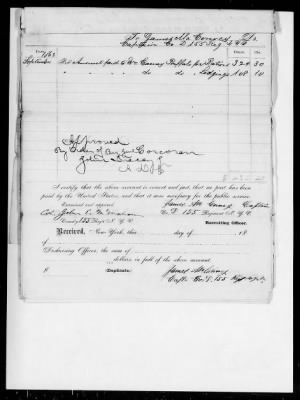 To James Mc Convey Dr
Captain Co D 155 Reg
1862
September For Amount paid to Wm Canvey Buffalo for Rations 324.30
do do Lodgings 108.10
Approved
By Order of Brig Genl Corcoran
I certify that the above account is correct and just, that no part has been
paid by the United States, and that it was necessary for the public service.
Examined and approved James Mc Convey Captain
Col. John E. McMahon Co. D 155 Regiment N. Y. V.
Comdg 155 Regt N. Y. V. Recruiting Officer.
Received, New York, this day of 18
Disbursing Officer, the sum of
dollars in full of the above account.
(Duplicate.) James McConvey
Capt Co. D. 155 Regt